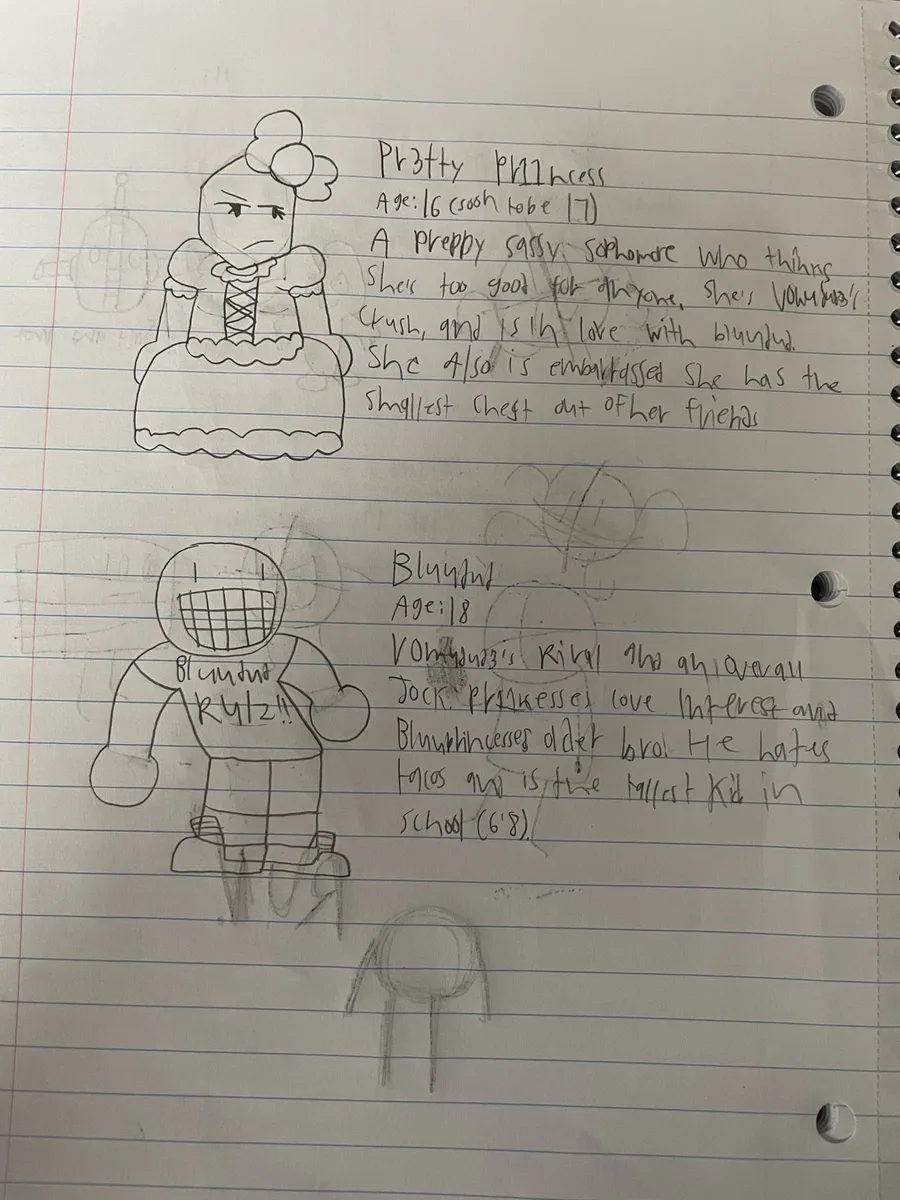 Pr3tty Pr11ncess
Age: 16 (soon to be 17)
A preppy sassy sophomore who thinks
She's too good for anyone, she's
Crush, and is in love with bluudud.
She Also is embarrassed she has the
Smallest Chest out of her friends
Bluudud
Age: 18
Rival and an overall
Jock. Pr11ncesses Love Interest and
Bluuprincesses older bro. He hates
tacos and is the tallest kid in
School (6'8)
Bluudud
RULZ!!